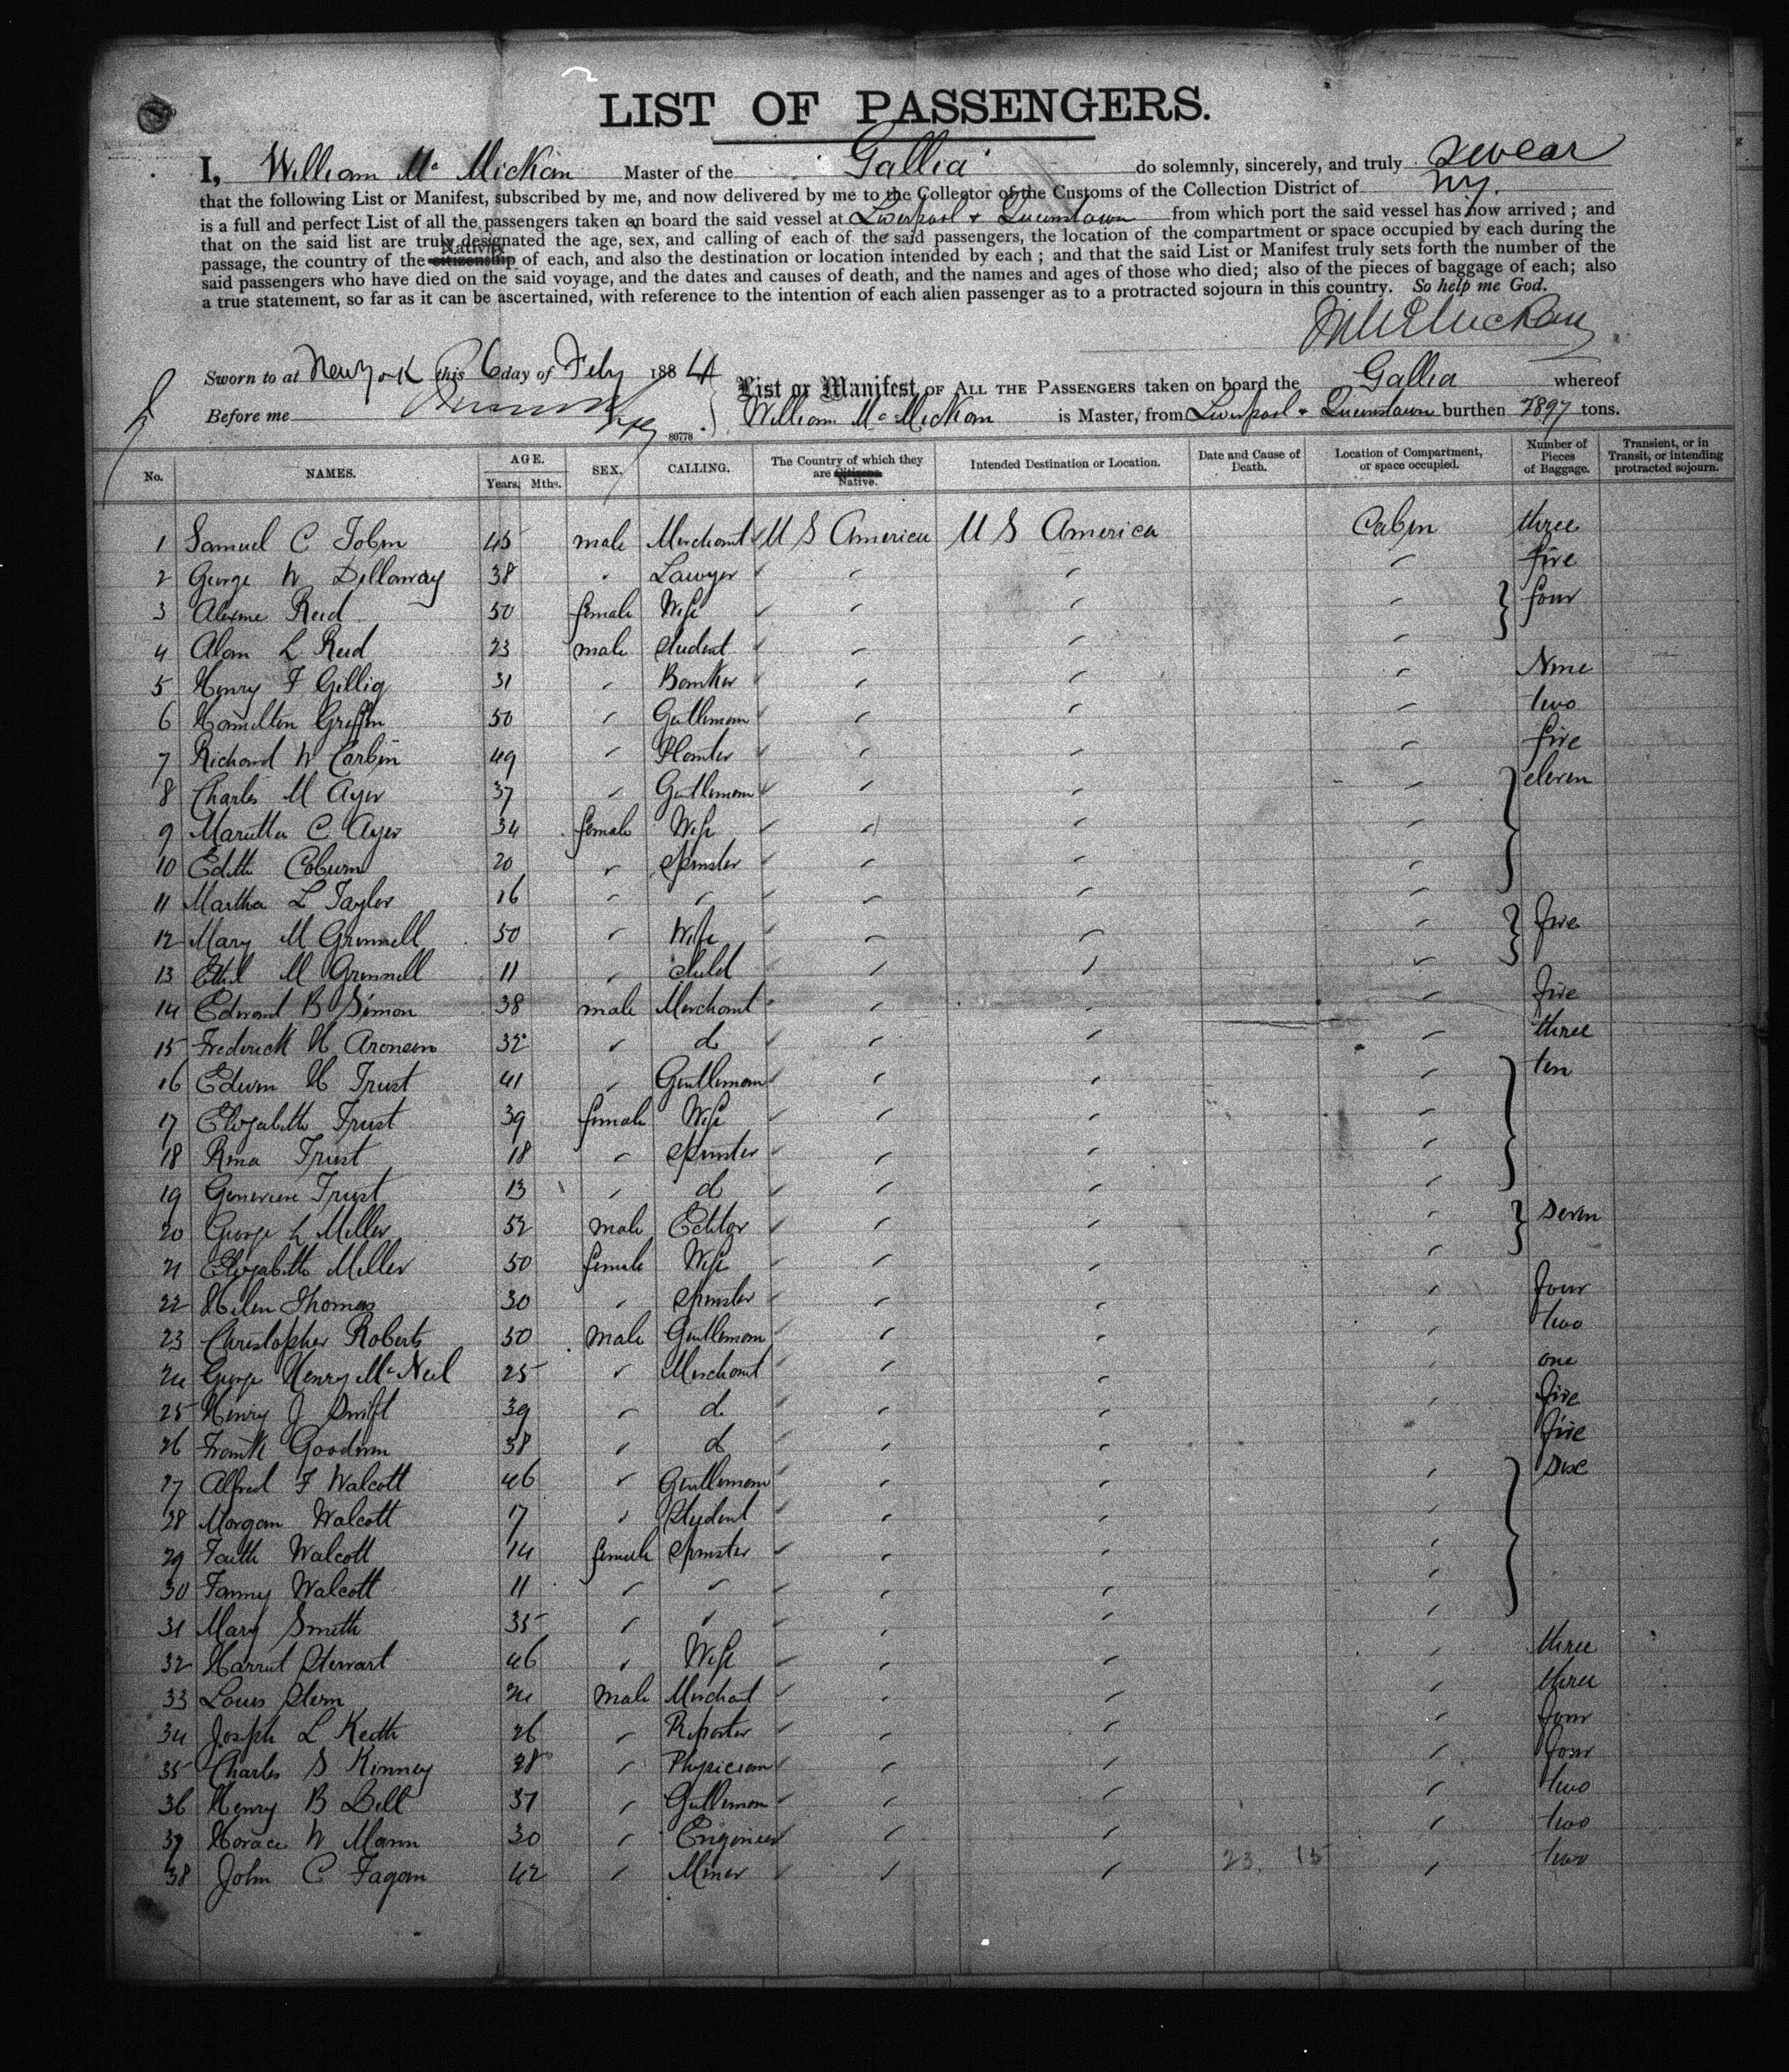 LIST OF PASSENGERS.
I, William Mc Mickan Master of the "Gallia" do solemnly, sincerely, and truly swear
that the following List or Manifest, subscribed by me, and now delivered by me to the Collector of the Customs of the Collection District of NY.
is a full and perfect List of all the passengers taken on board the said vessel at Liverpool & Queenstown from which port the said vessel has now arrived; and
that on the said list are truly designated the age, sex, and calling of each of the said passengers, the location of the compartment or space occupied by each during the
Nativity
passage, the country of the citizenship of each, and also the destination or location intended by each; and that the said List or Manifest truly sets forth the number of the
said passengers who have died on the said voyage, and the dates and causes of death, and the names and ages of those who died; also of the pieces of baggage of each; also
a true statement, so far as it can be ascertained, with reference to the intention of each alien passenger as to a protracted sojourn in this country. So help me God.
Sworn to at New York this 6 day of Feby 1884
List or Manifest OF ALL THE PASSENGERS taken on board the Gallia whereof
Before me
80778
William Mc Mickan is Master, from Liverpool & Queenstown burthen 2897 tons.
No. NAMES. AGE. Years. Mths. SEX. CALLING. The Country of which they are Citizens Native. Intended Destination or Location. Date and Cause of Death. Location of Compartment, or space occupied. Number of Pieces of Baggage. Transient, or in Transit, or intending protracted sojourn.
1 Samuel C Tobin 45 male Merchant U S America U S America Cabin three
2 George W Dellaway 38 " Lawyer " " " five
3 Reed 50 female Wife " " " four
4 Alan L Reed 23 male Student " " "
5 Henry F Gillig 31 " Banker " " " Nine
6 Hamilton Griffin 50 " Gentleman " " " two
7 Richard W Corbin 49 " Planter " " " five
8 Charles M Ayer 37 " Gentleman " " " eleven
9 Maretta C Ayer 34 female Wife " " "
10 Edith Coburn 20 " Spinster " " "
11 Martha L Taylor 16 " " " " "
12 Mary M Grinnell 50 " Wife " " " five
13 Ethel M Grinnell 11 " child " " "
14 Edward B Simon 38 male Merchant " " " five
15 Frederick H Aronson 32 " do " " " three
16 Edwin H Trust 41 " Gentleman " " " ten
17 Elizabeth Trust 39 female Wife " " "
18 Rma Trust 18 " Spinster " " "
19 Genevieve Trust 13 " do " " "
20 George L Miller 52 male Editor " " " Seven
21 Elizabeth Miller 50 female Wife " " "
22 Helen Thomas 30 " Spinster " " " four
23 Christopher Roberts 50 male Gentleman " " " two
24 George Henry Mc Neil 25 " Merchant " " " one
25 Henry J Swift 39 " do " " " five
26 Frank Goodwin 38 " do " " five
27 Alfred F Walcott 46 " Gentleman " " " Six
28 Morgan Walcott 17 " Student " " "
29 Faith Walcott 14 female Spinster " " "
30 Fanny Walcott 11 " " " " "
31 Mary Smith 35 " " " " "
32 Harriet Stewart 46 " Wife " " " three
33 Louis Stern 24 male Merchant " " " three
34 Joseph L Keith 26 " Reporter " " " four
35 Charles S Kinney 28 " Physician " " " four
36 Henry B Bell 37 " Gentleman " " " two
37 Horace W Mann 30 " Engineer " " " two
38 John C Fagan 42 " Miner " " 23, 15 " two